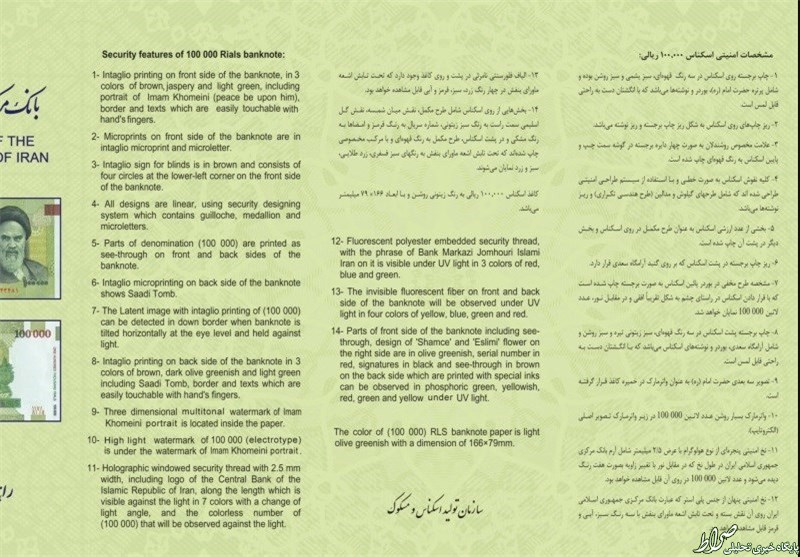 بانک مرک
F THE
OF IRAN
100000
Security features of 100 000 Rials banknote:
1- Intaglio printing on front side of the banknote, in 3
colors of brown, jaspery and light green, including
portrait of Imam Khomeini (peace be upon him),
border and texts which are easily touchable with
hand's fingers.
2- Microprints on front side of the banknote are in
intaglio microprint and microletter.
3- Intaglio sign for blinds is in brown and consists of
four circles at the lower-left corner on the front side
of the banknote.
4- All designs are linear, using security designing
system which contains guilloche, medallion and
microletters.
5- Parts of denomination (100 000) are printed as
see-through on front and back sides of the
banknote.
6- Intaglio microprinting on back side of the banknote
shows Saadi Tomb.
7- The Latent image with intaglio printing of (100 000)
can be detected in down border when banknote is
tilted horizontally at the eye level and held against
light.
8- Intaglio printing on back side of the banknote in 3
colors of brown, dark olive greenish and light green
including Saadi Tomb, border and texts which are
easily touchable with hand's fingers.
9- Three dimensional multitonal watermark of Imam
Khomeini portrait is located inside the paper.
10- High light watermark of 100 000 (electrotype)
is under the watermark of Imam Khomeini portrait.
11- Holographic windowed security thread with 2.5 mm
width, including logo of the Central Bank of the
Islamic Republic of Iran, along the length which is
visible against the light in 7 colors with a change of
light angle, and the colorless number of
(100 000) that will be observed against the light.
12- Fluorescent polyester embedded security thread,
with the phrase of Bank Markazi Jomhouri Islami
Iran on it is visible under UV light in 3 colors of red,
blue and green.
13- The invisible fluorescent fiber on front and back
side of the banknote will be observed under UV
light in four colors of yellow, blue, green and red.
14- Parts of front side of the banknote including see-
through, design of 'Shamce' and 'Eslimi' flower on
the right side are in olive greenish, serial number in
red, signatures in black and see-through in brown
on the back side which are printed with special inks
can be observed in phosphoric green, yellowish,
red, green and yellow under UV light.
The color of (100 000) RLS banknote paper is light
olive greenish with a dimension of 166×79mm.
سازمان تولید اسکناس و مسکوک
مشخصات امنیتی اسکناس ۱۰۰,۰۰۰ ریالی:
۱- چاپ برجسته روی اسکناس در سه رنگ قهوه‌ای، سبز یشمی و سبز روشن بوده و
شامل پرتره حضرت امام (ره)، بوردر و نوشته‌ها می‌باشد که با انگشتان دست به راحتی
قابل لمس است.
۲- ریز چاپ‌های روی اسکناس به شکل ریز چاپ برجسته و ریز نوشته می‌باشد.
۳- علامت مخصوص روشندلان به صورت چهار دایره برجسته در گوشه سمت چپ و
پایین اسکناس به رنگ قهوه‌ای چاپ شده است.
۴- کلیه نقوش اسکناس به صورت خطی و با استفاده از سیستم طراحی امنیتی
طراحی شده اند که شامل طرحهای گیلوش و مدالین (طرح هندسی تکراری) و ریز
نوشته‌ها می‌باشد.
۵- بخشی از عدد ارزشی اسکناس به عنوان طرح مکمل در روی اسکناس و بخش
دیگر در پشت آن چاپ شده است.
۶- ریز چاپ برجسته در پشت اسکناس که بر روی گنبد آرامگاه سعدی قرار دارد.
۷- مشخصه طرح مخفی در بوردر پائین اسکناس به صورت برجسته چاپ شده است
که با قرار دادن اسکناس در راستای چشم به شکل تقریباً افقی و در مقابل نور، عدد
لاتین 000 100 نمایان خواهد شد.
۸- چاپ برجسته پشت اسکناس در سه رنگ قهوه‌ای، سبز زیتونی تیره و سبز روشن و
شامل آرامگاه سعدی، بوردر و نوشته‌های اسکناس می‌باشد که با انگشتان دست به
راحتی قابل لمس است.
۹- تصویر سه بعدی حضرت امام (ره) به عنوان واترمارک در خمیره کاغذ قرار گرفته
است.
۱۰- واترمارک بسیار روشن عدد لاتین 000 100 در زیر واترمارک تصویر اصلی
(الکتروتایپ)
۱۱- نخ امنیتی پنجره‌ای از نوع هولوگرام با عرض ۲/۵ میلیمتر شامل آرم بانک مرکزی
جمهوری اسلامی ایران در طول نخ که در مقابل نور با تغییر زاویه بصورت هفت رنگ
دیده می‌شود و عدد لاتین 000 100 در روی آن قابل مشاهده خواهد بود.
۱۲- نخ امنیتی پنهان از جنس پلی استر که عبارت بانک مرکزی جمهوری اسلامی
ایران روی آن نقش بسته و تحت تابش اشعه ماورای بنفش با سه رنگ سبز، آبی و
قرمز قابل مشاهده خواهد بود.
۱۳- الیاف فلورسنتی نامرئی در پشت و روی کاغذ وجود دارد که تحت تابش اشعه
ماورای بنفش در چهار رنگ زرد، سبز، قرمز و آبی قابل مشاهده خواهد بود.
۱۴- بخش‌هایی از روی اسکناس شامل طرح مکمل، نقش میان شمسه، نقش گل
اسلیمی سمت راست به رنگ سبز زیتونی، شماره سریال به رنگ قرمز و امضاها به
رنگ مشکی و در پشت اسکناس، طرح مکمل به رنگ قهوه‌ای و با مرکب مخصوصی
چاپ شده‌اند که تحت تابش اشعه ماورای بنفش به رنگهای سبز فسفری، زرد طلایی،
سبز و زرد نمایان می‌شوند.
کاغذ اسکناس ۱۰۰,۰۰۰ ریالی به رنگ زیتونی روشن و با ابعاد ۱۶۶×۷۹ میلیمتر
می‌باشد.
صراط
پایگاه خبری تحلیلی